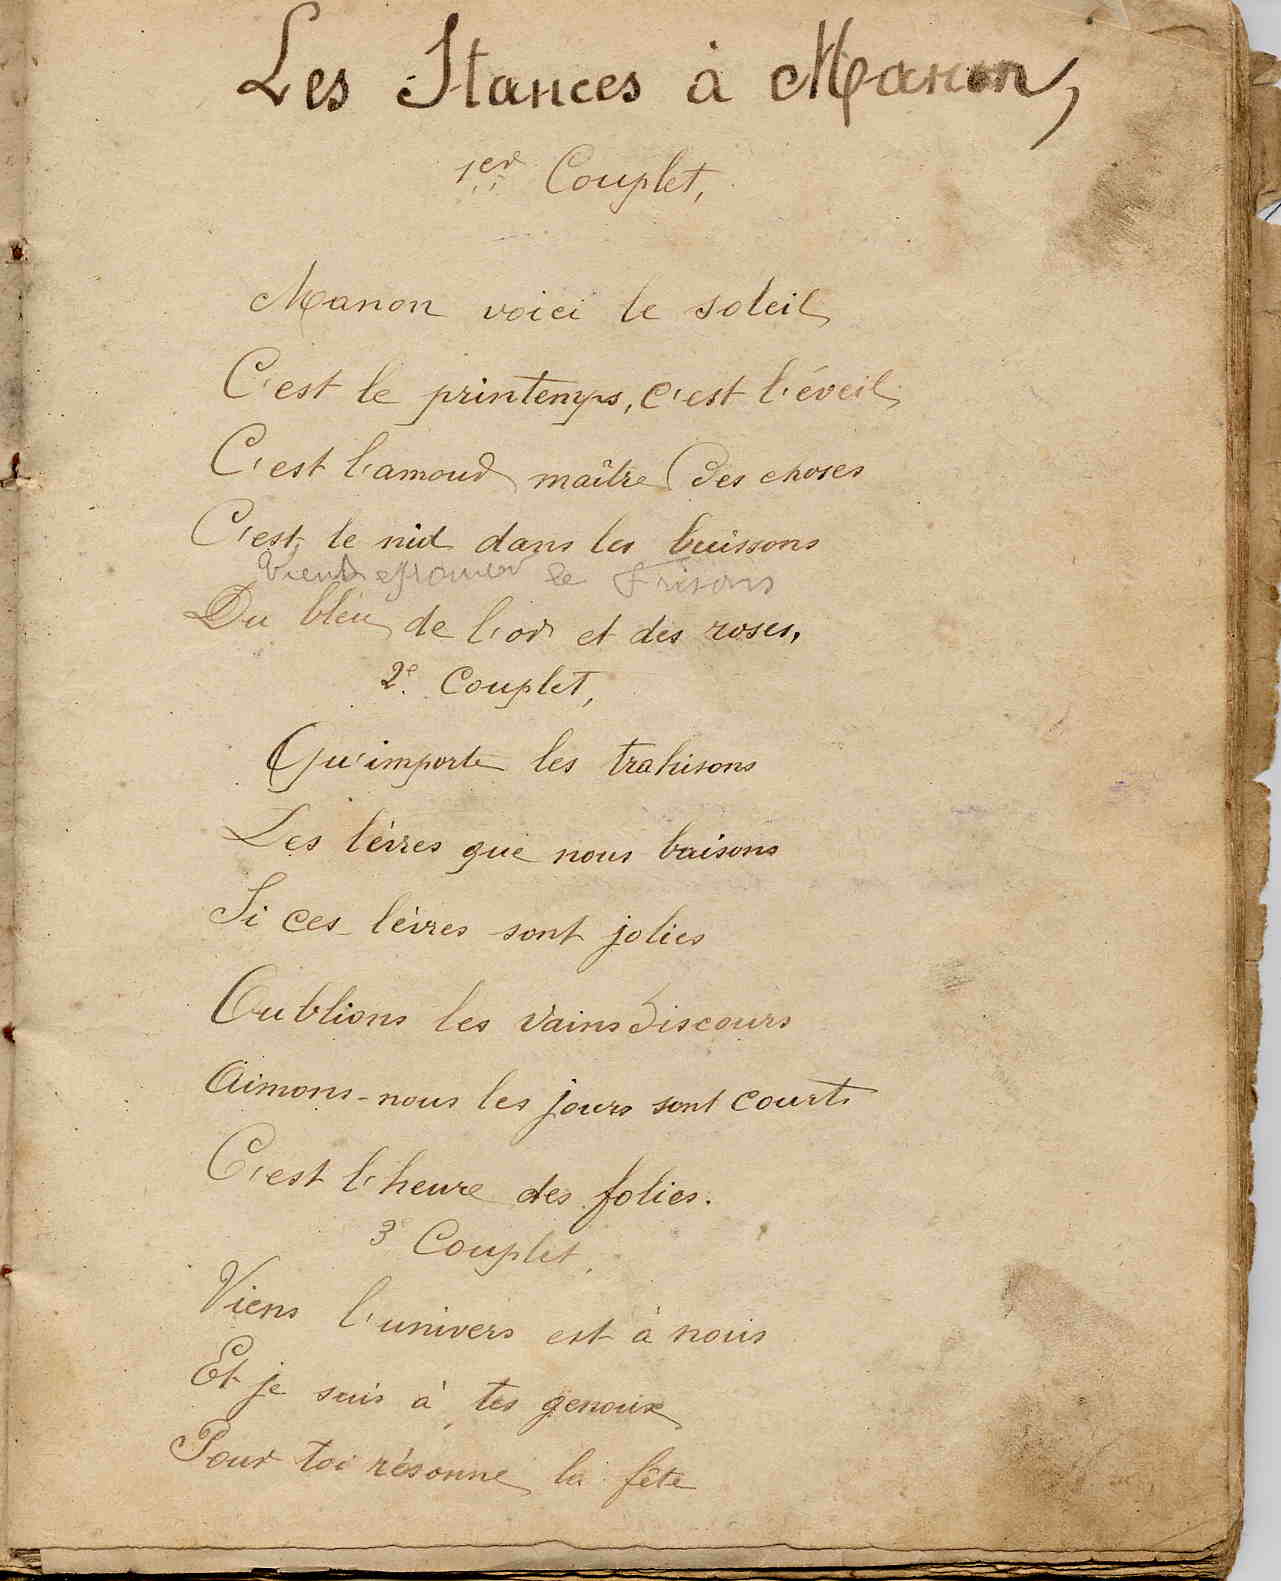 Les Stances à Manon,
1er Couplet,
Manon voici le soleil
C'est le printemps, c'est l'éveil
C'est l'amour maître des choses
C'est le nid dans les buissons
Vient le frisons
Du bleu de l'or et des roses.
2e Couplet,
Qu'importe les trahisons
Les lèvres que nous baisons
Si ces lèvres sont jolies
Oublions les vains discours
Aimons-nous les jours sont courts
C'est l'heure des folies.
3e Couplet,
Viens l'univers est à nous
Et je suis à tes genoux
Pour toi résonne la fête